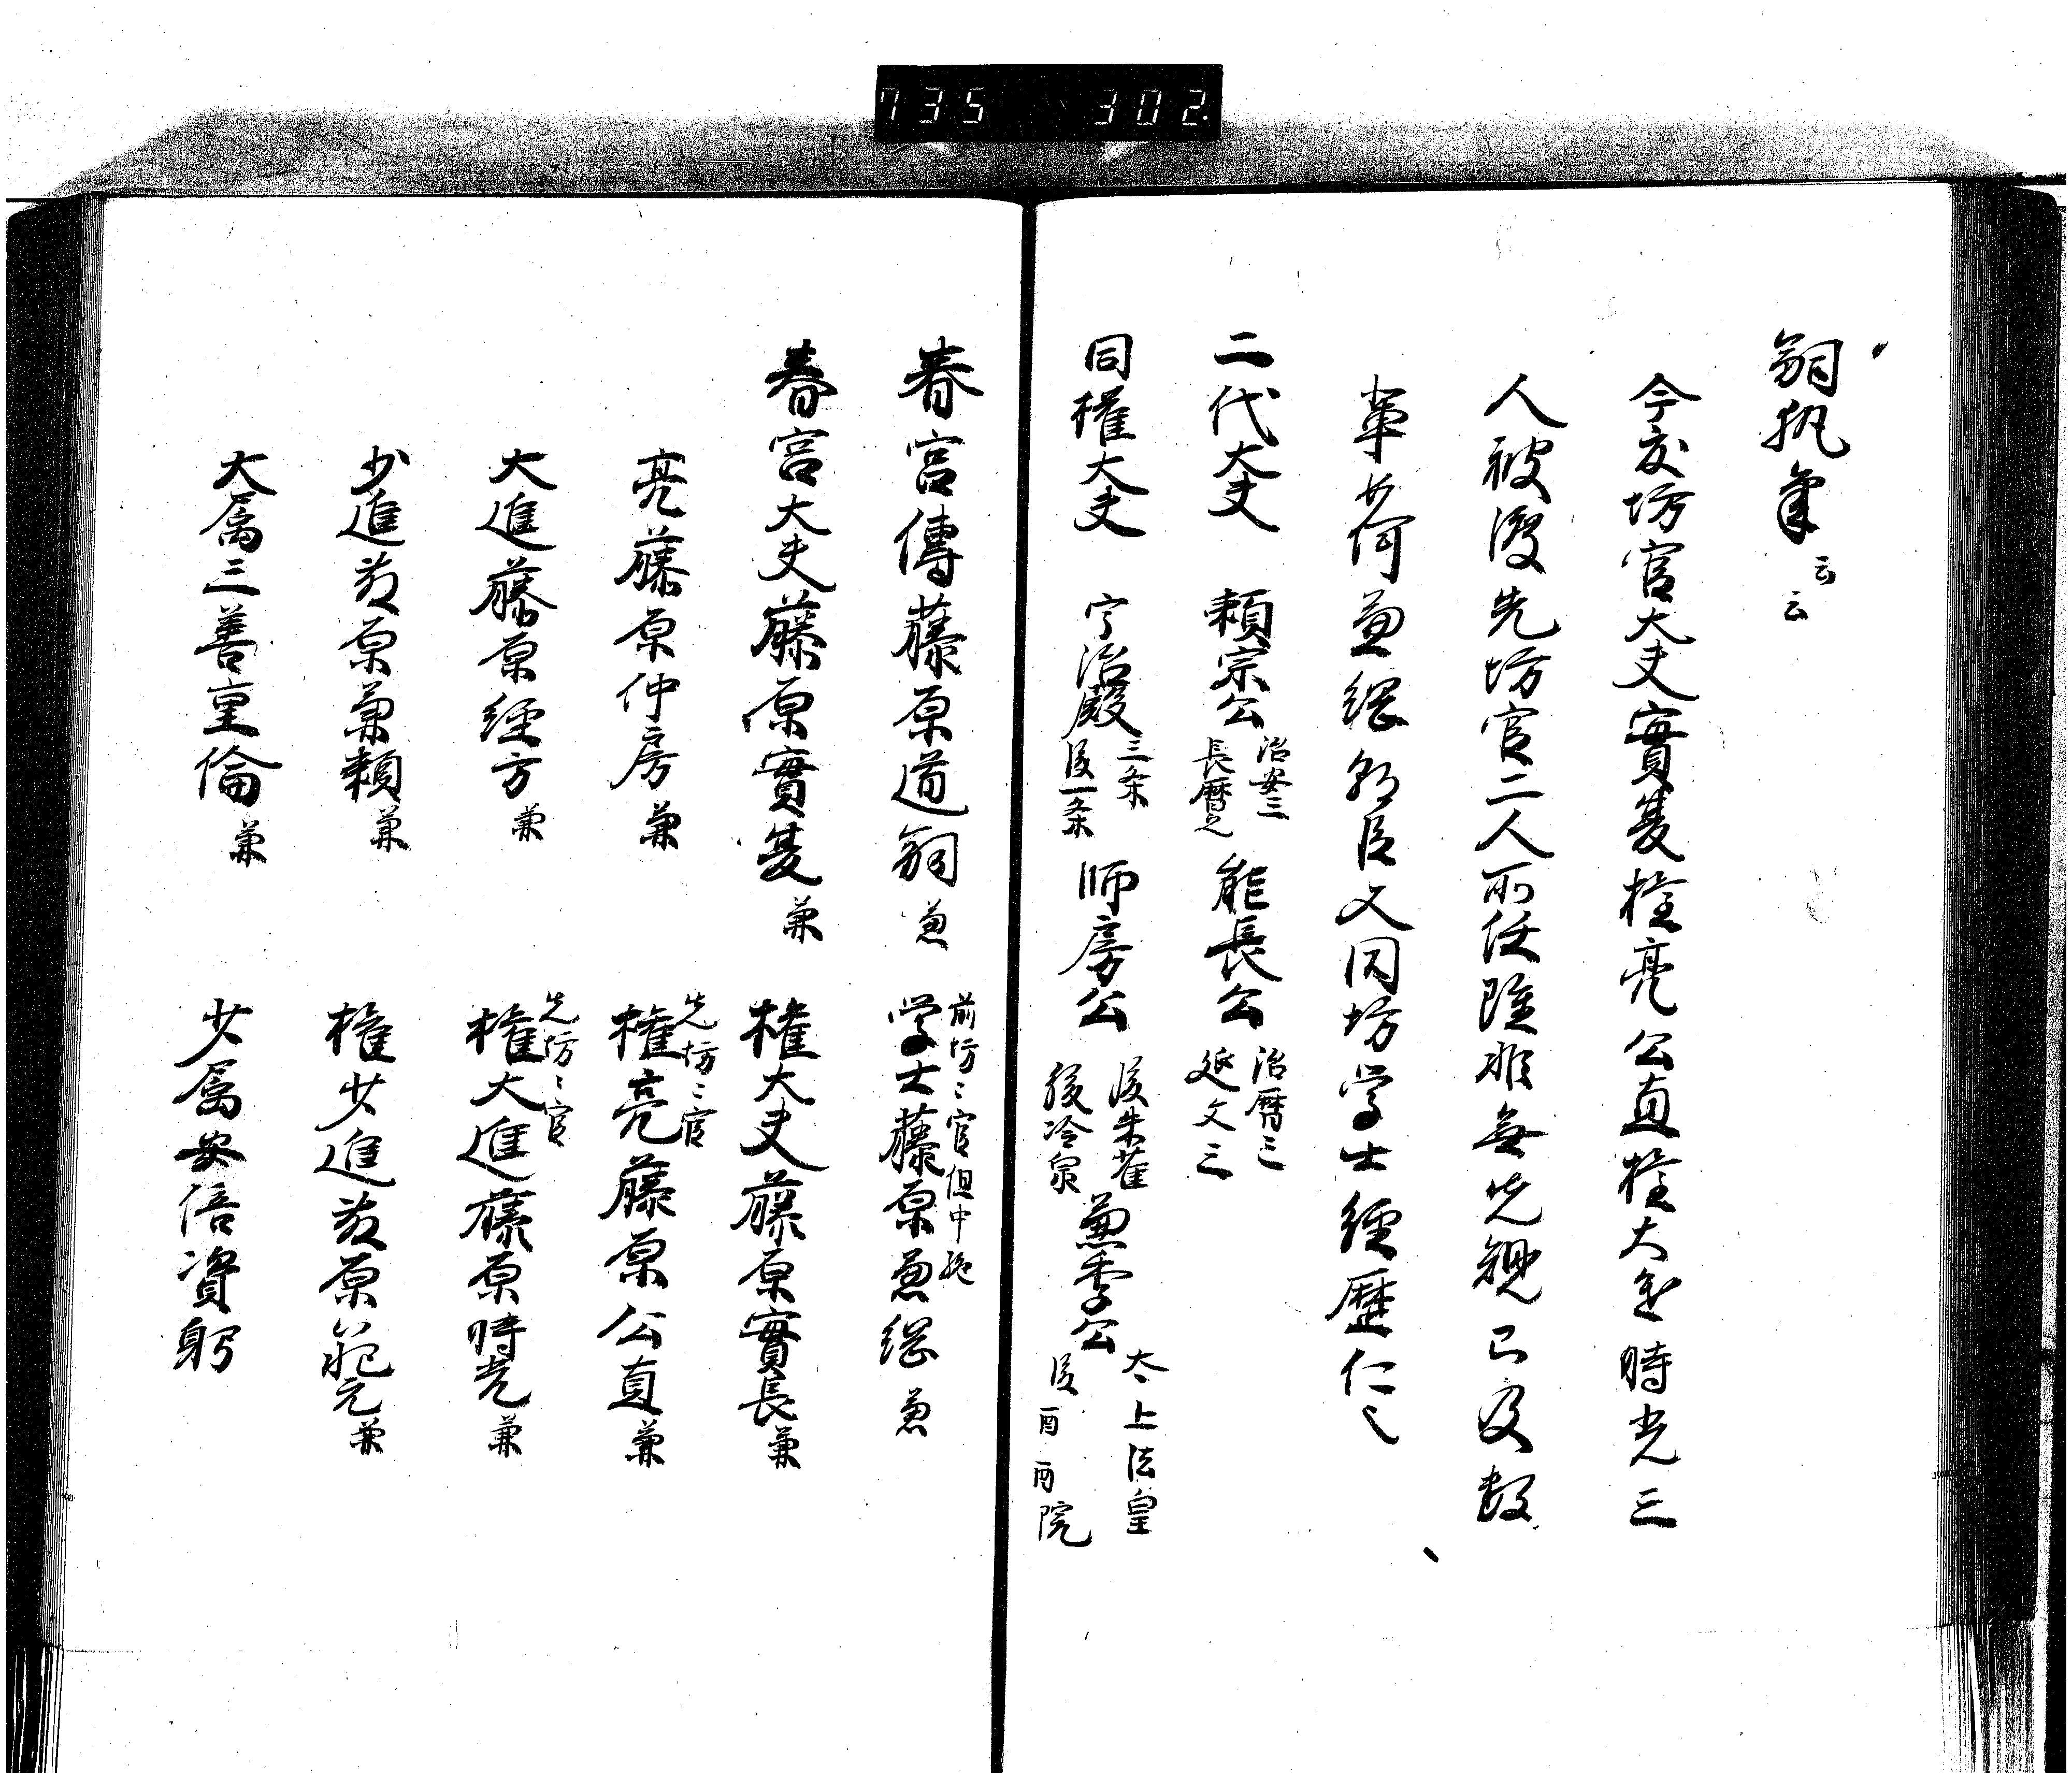 735 302
嗣執筆云云
今度坊官大夫實夏権亮公直権大進時光三
人被渡先坊官二人所任雖非無先規已及数
輩荷兼綱朝臣又同坊学士経歴仁也
二代大夫 頼宗公 治安三 長暦元 能長公 治暦三 延文三
同権大夫 宇治殿 三条 後一条 師房公 後朱雀 後冷泉 兼季公 太上法皇 後酉酉院
春宮傅藤原道嗣兼 学士藤原兼綱兼 前坊ミ官但中絶
春宮大夫藤原實夏兼 権大夫藤原實長兼
亮藤原仲房兼 権亮藤原公直兼 先坊ミ官
大進藤原経方兼 権大進藤原時光兼 先坊ミ官
少進藤原兼頼兼 権少進藤原範元兼
大属三善重倫兼 少属安倍資躬